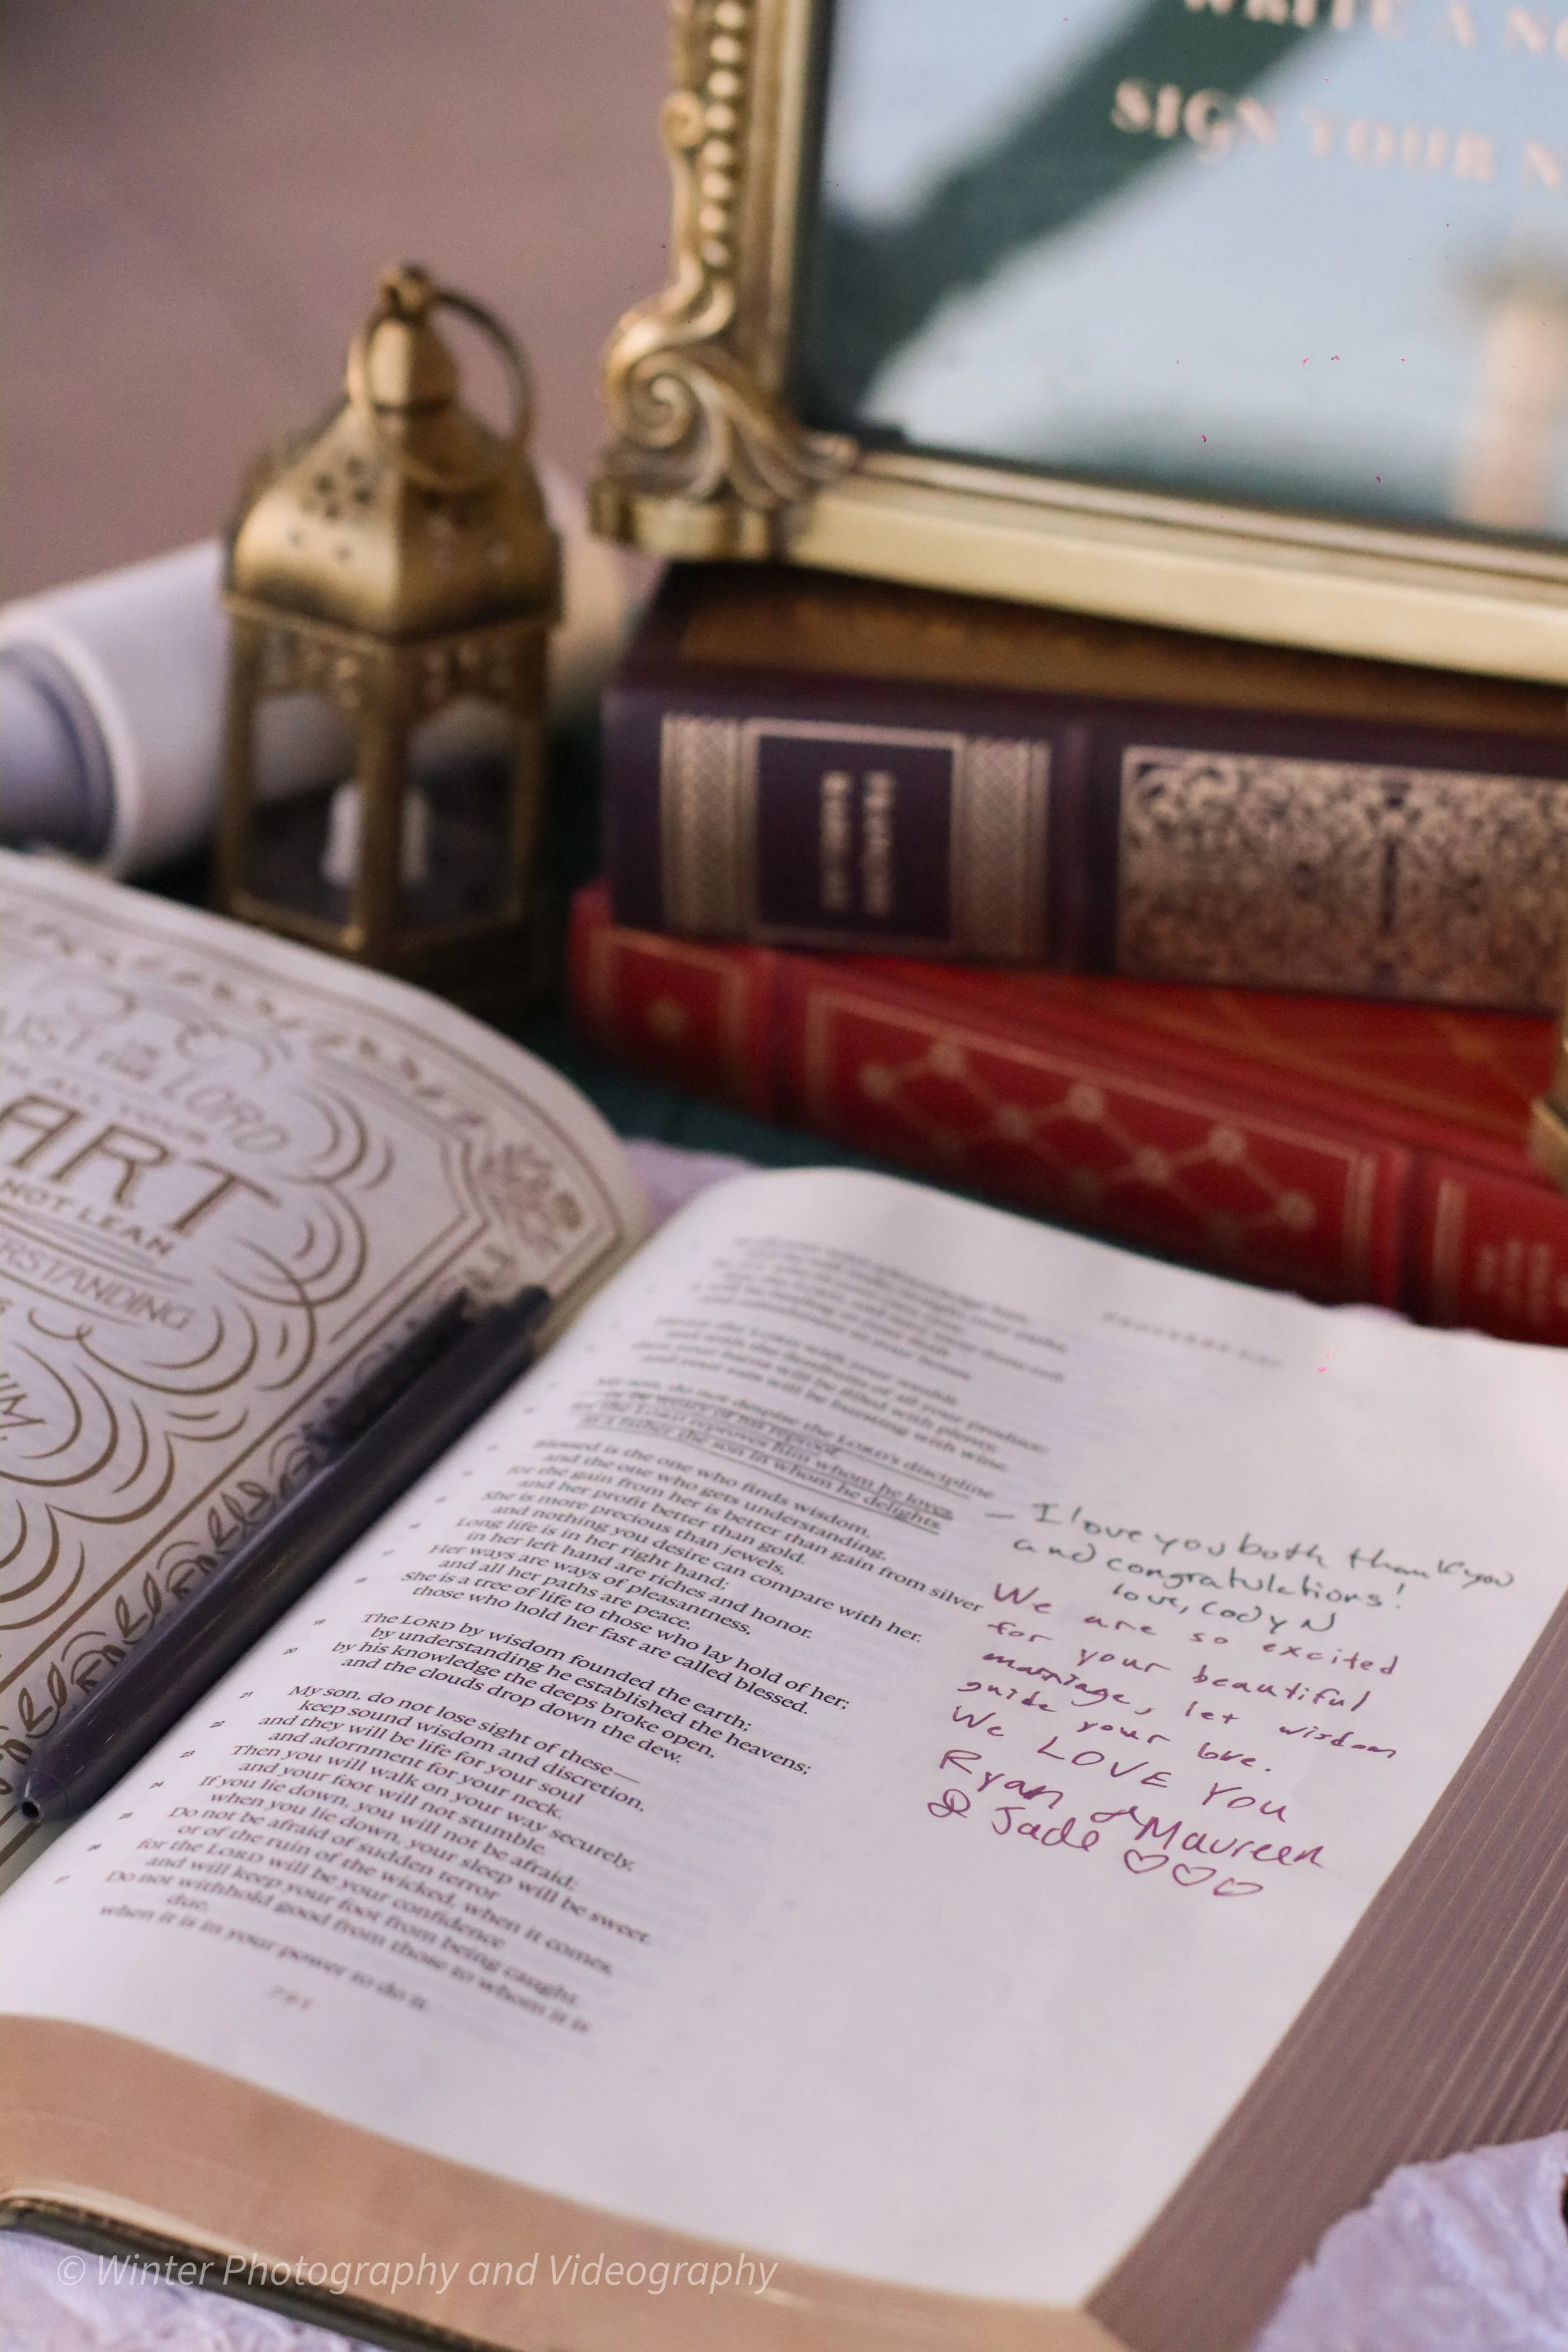 WRITE A
SIGN YOUR N
LORD
ALL YOUR
ART
NOT LEAN
RSTANDING
PROVERBS
My son, do not despise the LORD's discipline
or be weary of his reproof,
for the LORD reproves him whom he loves,
as a father the son in whom he delights.
Blessed is the one who finds wisdom,
and the one who gets understanding,
for the gain from her is better than gain from silver
and her profit better than gold.
She is more precious than jewels,
and nothing you desire can compare with her.
Long life is in her right hand;
in her left hand are riches and honor.
Her ways are ways of pleasantness,
and all her paths are peace.
She is a tree of life to those who lay hold of her;
those who hold her fast are called blessed.
19 The LORD by wisdom founded the earth;
by understanding he established the heavens;
20 by his knowledge the deeps broke open,
and the clouds drop down the dew.
21 My son, do not lose sight of these—
keep sound wisdom and discretion,
22 and they will be life for your soul
and adornment for your neck.
23 Then you will walk on your way securely,
and your foot will not stumble.
24 If you lie down, you will not be afraid;
when you lie down, your sleep will be sweet.
25 Do not be afraid of sudden terror
or of the ruin of the wicked, when it comes,
26 for the LORD will be your confidence
and will keep your foot from being caught.
27 Do not withhold good from those to whom it is
due,
when it is in your power to do it.
- I love you both thank you
and congratulations!
love, Cody N
We are so excited
for your beautiful
marriage, let wisdom
guide your love.
We LOVE YOU
Ryan & Maureen
& Jade ♡♡♡
© Winter Photography and Videography